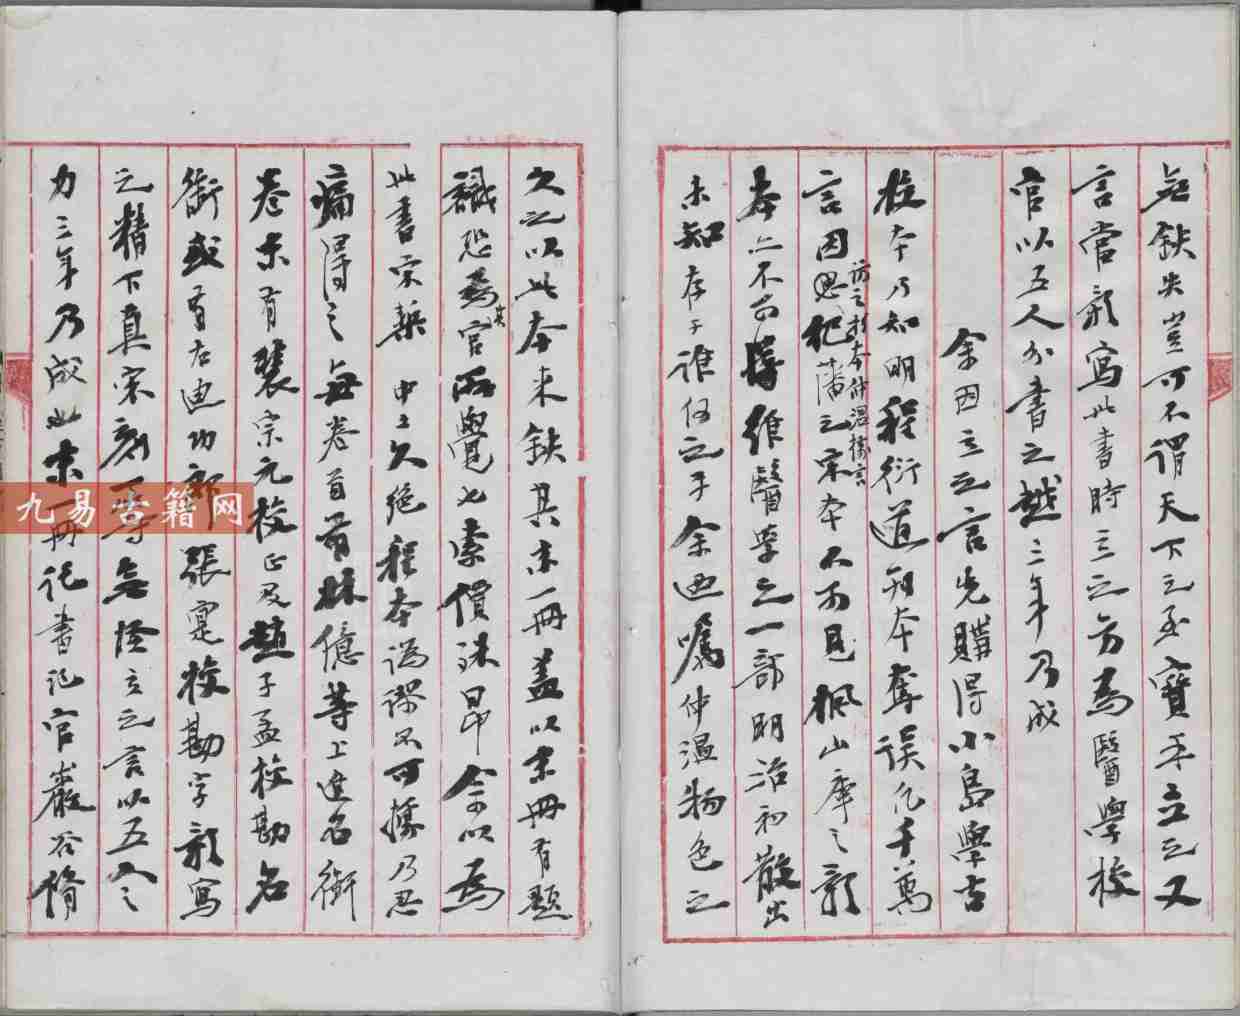 無缺失豈可不謂天下之至寶乎立之又
言當影寫此書時三之方為醫學校
官以五人分書之越三年乃成
余因立之言先購得小島學古
校本乃知明程衍道刊本奪誤凡千萬
言因思犯蕃之宋本不可見楓山庫之影
訪之於本仲温據言
本亦不可得唯醫學之一部明治初散出
未知存于誰何之手余迺囑仲温物色之
久之以此本来缺其末一冊蓋以末冊有題
識恐為官所覺也索價殊昂今以為
其
此書宋槧中土久絶程本譌謬不可據乃忍
痛得之每卷首有林億等上進名銜
卷末有裴宗元校正及趙子孟校勘名
銜或有右迪功郎張寔校勘字影寫
之精下真宋刻一等無怪立之言以五人之
力三年乃成此末一冊記書記官巖谷脩
九易古籍网